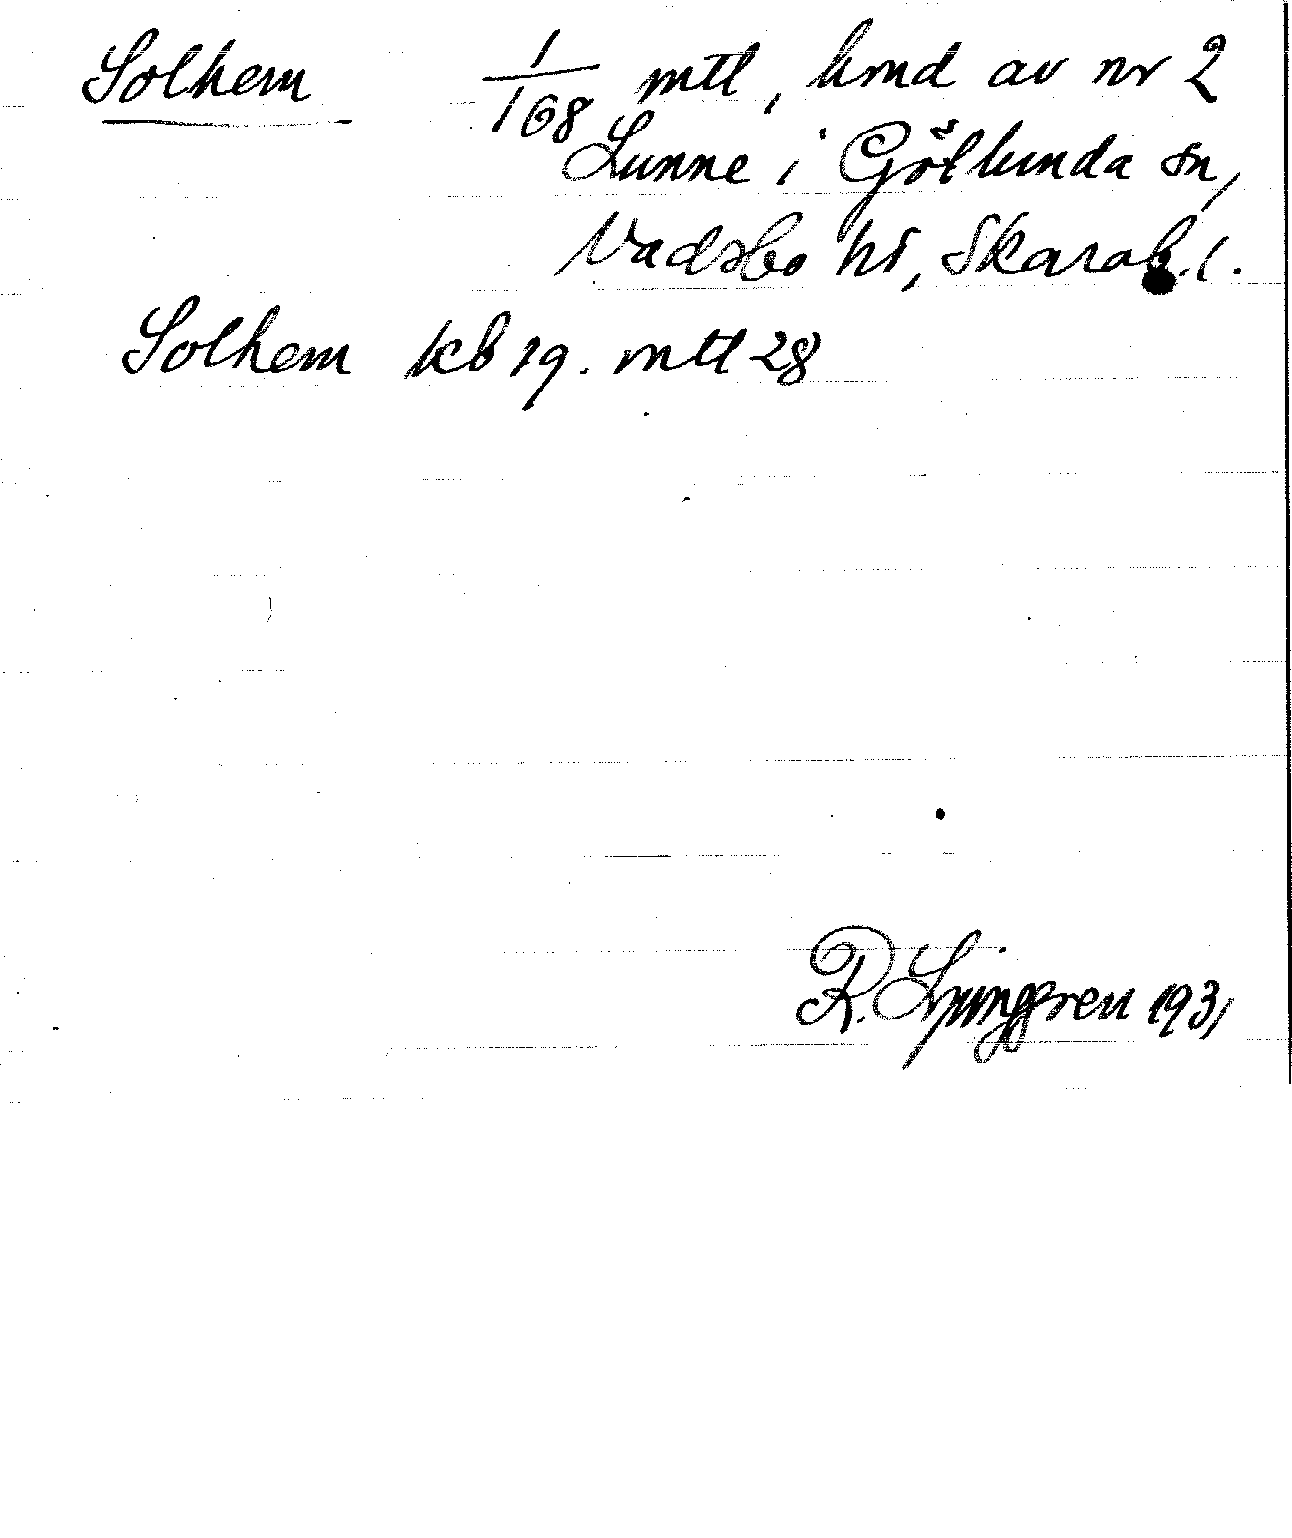 Solhem 1/168 mtl, hmd av nr 2
Lunne i Götlunda sn,
Vadsbo hd, Skarab. l.
Solhem kb 19. mtl 28
R. Ljunggren 1931